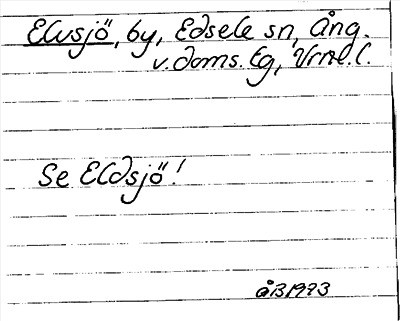 Elvsjö, by, Edsele sn, Ång.
v. doms. tg, Vrml. l.
Se Eldsjö!
ÅB 1973